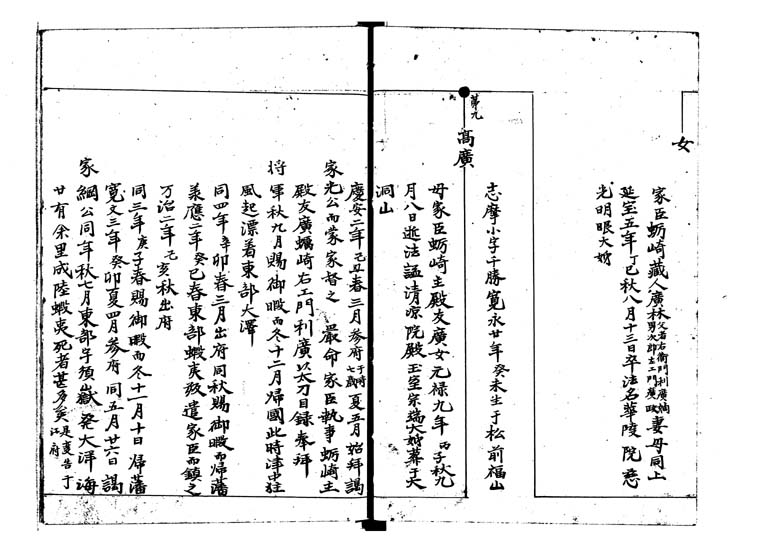 女
家臣蛎崎藏人廣林父者右衛門利廣嫡男次郎左エ門廣政妻母同上
延宝五年丁巳秋八月十三日卒法名華陵院慈
光明眼大姉
第九
高廣
志摩小字千勝寛永廿年癸未生于松前福山
母家臣蛎崎主殿友廣女元禄九年丙子秋九
月八日逝法謚清凉院殿玉室宗瑞大姉葬于大
洞山
慶安二年己丑春三月参府于時七歳夏五月始拜謁
家光公而蒙家督之 嚴命家臣執事蛎崎主
殿友廣蠣崎右エ門利廣以太刀目録奉拜
将軍秋九月賜御暇而冬十二月帰國此時津中狂
風起漂着東部大澤
同四年辛卯春三月出府同秋賜御暇而帰藩
承應二年癸巳春東部蝦夷叛遣家臣而鎮之
万治二年己亥秋出府
同三年庚子春賜御暇而冬十一月十日帰藩
寛文三年癸卯夏四月参府同五月廿六日謁
家綱公同年秋七月東部宇須嶽発大洋海
廿有余里成陸蝦夷死者甚多矣是夏告于江府